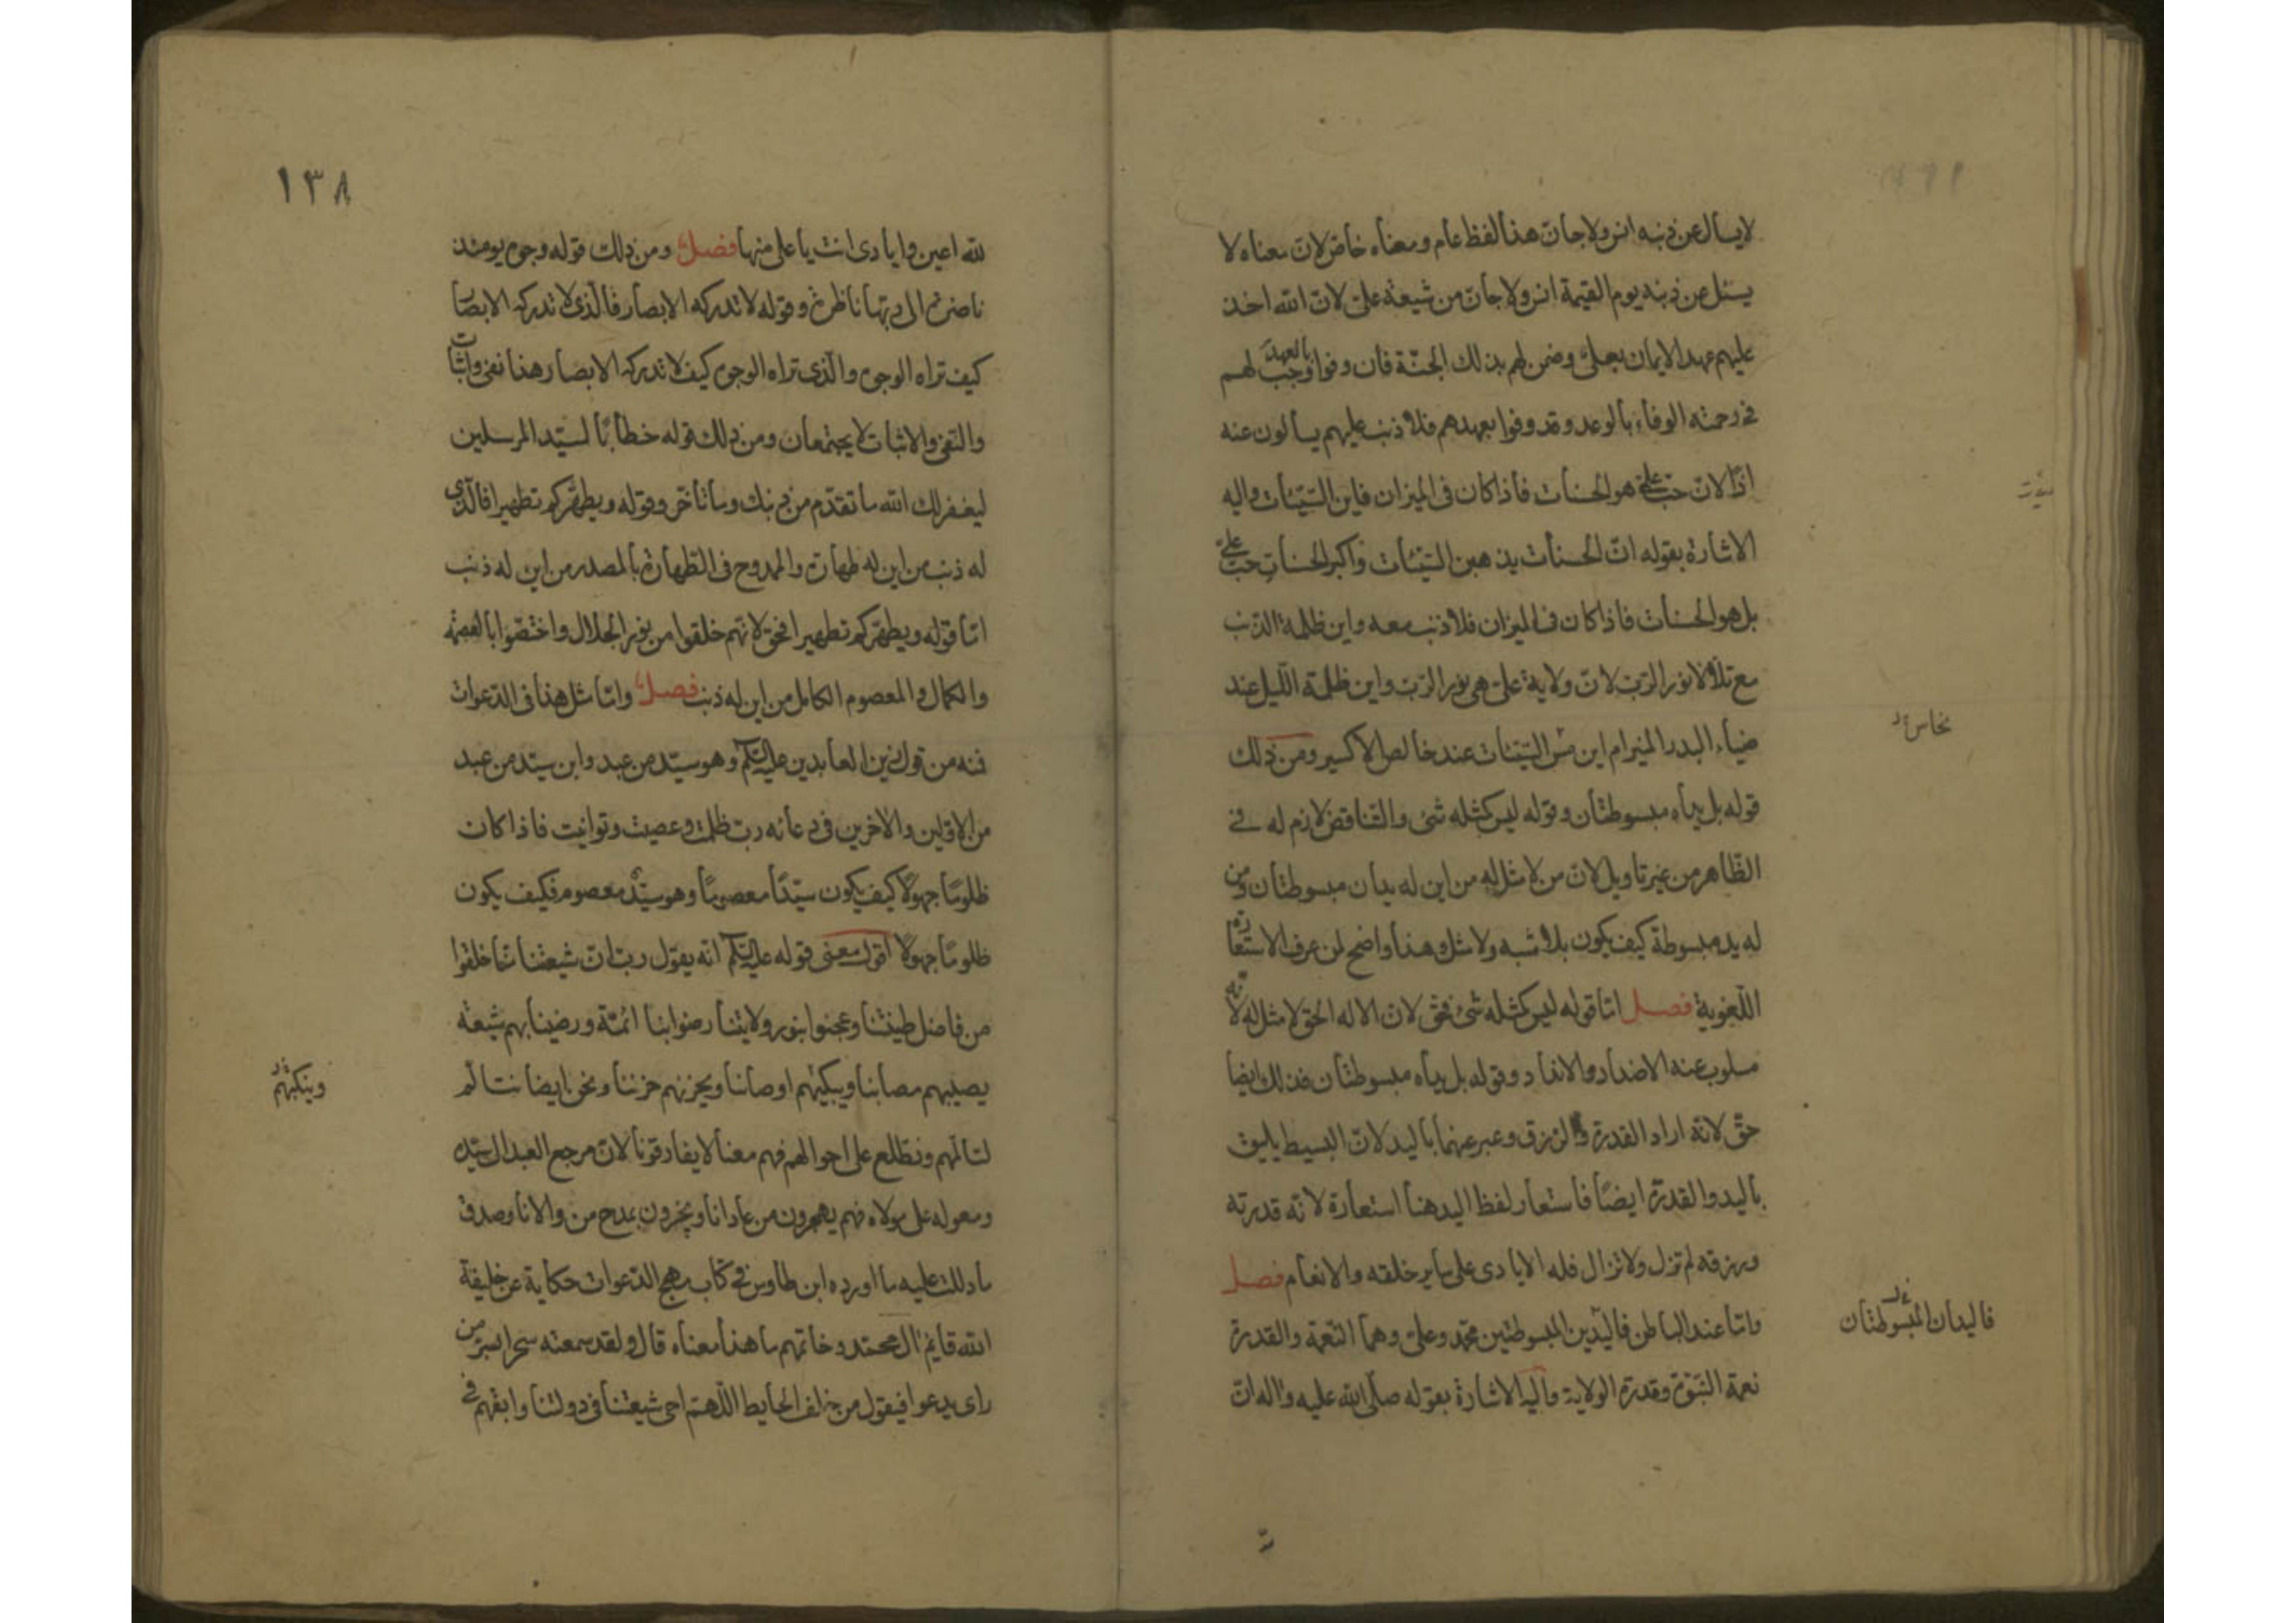 لا يسأل عن ذنبه انس ولا جان هذا لفظ عام ومعناه خاص لان معناه لا
يسئل عن ذنبه يوم القيمة انس ولا جان من شيعة علي لان الله اخذ
عليهم عهد الايمان بعلي وضمن لهم بذلك الجنة فان وفوا بالعهد وجب لهم
في رحمته الوفاء بالوعد وقد وفوا بعهدهم فلا ذنب عليهم يسألون عنه
اذًا لان حب علي هو الحسنات فاذا كان في الميزان فاين السيّئات واليه
الاشارة بقوله انّ الحسنات يذهبن السيّئات واكبر الحسنات حب علي
بل هو الحسنات فاذا كان في الميزان فلا ذنب معه واين ظلمة الذنب
مع تلألأ نور الربّ لانّ ولاية علي هي نور الربّ واين ظلمة اللّيل عند
ضياء البدر المنير ام اين مسّ السيّئات عند خالص الاكسير ومن ذلك
نحاس
قوله بل يداه مبسوطتان وقوله ليس كمثله شئ والتناقض لازم له في
الظّاهر من غير تأويل لانّ من لا مثل له من اين له يدان مبسوطتان ومن
له يد مبسوطة كيف يكون بلا شبه ولا مثل وهذا واضح لمن عرف الاستعارة
اللّغوية فصل امّا قوله ليس كمثله شئ فحقّ لانّ الاله الحق لا مثل له لانه
مسلوب عنه الاضداد والانداد وقوله بل يداه مبسوطتان فذلك ايضا
حقّ لانّه اراد القدرة والرزق وعبر عنهما باليد لانّ البسيط يليق
باليد والقدرة ايضًا فاستعار لفظ اليد هنا استعارة لانّه قدرته
ورزقه لم تزل ولا تزال فله الايادي على ساير خلقه والانعام فصل
وامّا عند الباطن فاليدين المبسوطتين محمّد وعلي وهما النّعمة والقدرة
فاليدان المبسوطتان
نعمة النبّوة وقدرة الولاية واليه الاشارة بقوله صلّى الله عليه واله انّ
١٣٨
لله اعين وايادى انت يا على منها فصل ومن ذلك قوله وجوه يومئذ
ناضرة الى ربّها ناظرة وقوله لا تدركه الابصار فالّذى لا تدركه الابصار
كيف تراه الوجوه والّذى تراه الوجوه كيف لا تدركه الابصار هذا نفى واثبات
والنّفى والاثبات لا يجتمعان ومن ذلك قوله خطابًا لسيّد المرسلين
ليغفر لك الله ما تقدّم من ذنبك وما تأخّر وقوله ويطهّركم تطهيرا فالّذى
له ذنب من اين له طهارة والممدوح في الطّهارة بالمصدر من اين له ذنب
امّا قوله ويطهّركم تطهيرا فحقّ لانّهم خلقوا من نور الجلال واختصّوا بالعصمة
والكمال والمعصوم الكامل من اين له ذنب فصل وامّا مثل هذا في الدّعوات
فنه من قول زين العابدين عليه السّلم وهو سيّد من عبد وابن سيّد من عبد
من الاوّلين والاخرين في دعائه ربّ ظلمت وعصيت وتوانيت فاذا كان
ظلومًا جهولًا كيف يكون سيّدًا معصومًا وهو سيّد معصوم فكيف يكون
ظلومًا جهولًا اقول معنى قوله عليه السّلم انّه يقول ربّ انّ شيعتنا لمّا خلقوا
من فاضل طينتنا وعجنوا بنور ولايتنا رضوا بنا ائمّة ورضينا بهم شيعة
يصيبهم مصابنا ويبكيهم اوصابنا ويحزنهم حزننا ونحن ايضا نتألّم
وينكبهم
لتألّمهم ونطّلع على احوالهم فهم معنا لا يفارقونا لانّ مرجع العبد الى سيّده
ومعوله على مولاه فهم يهجرون من عادانا ويجهرون بمدح من والانا وصدق
ما دللت عليه ما اورده ابن طاوس في كتاب مهج الدّعوات حكاية عن خليفة
الله قايم ال محمّد وخاتمهم ما هذا معناه قال ولقد سمعته سحرا بسرّ من
راى يدعوا فيقول من خلف الحايط اللّهمّ احى شيعتنا في دولتنا وابقهم في